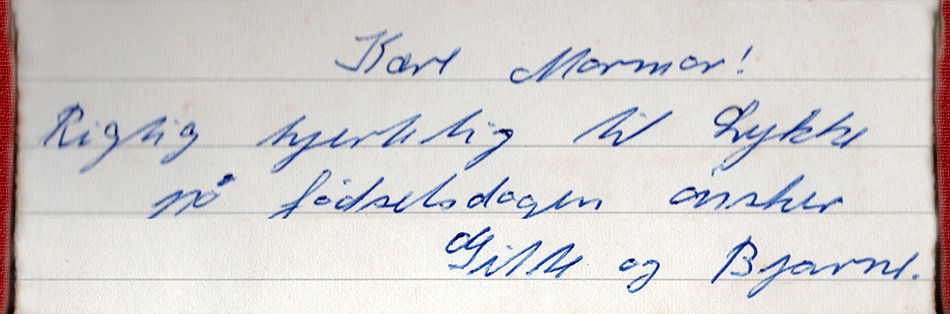 Kære Mormor!
Rigtig hjertelig til Lykke
på födselsdagen önsker
Gitte og Bjarne.